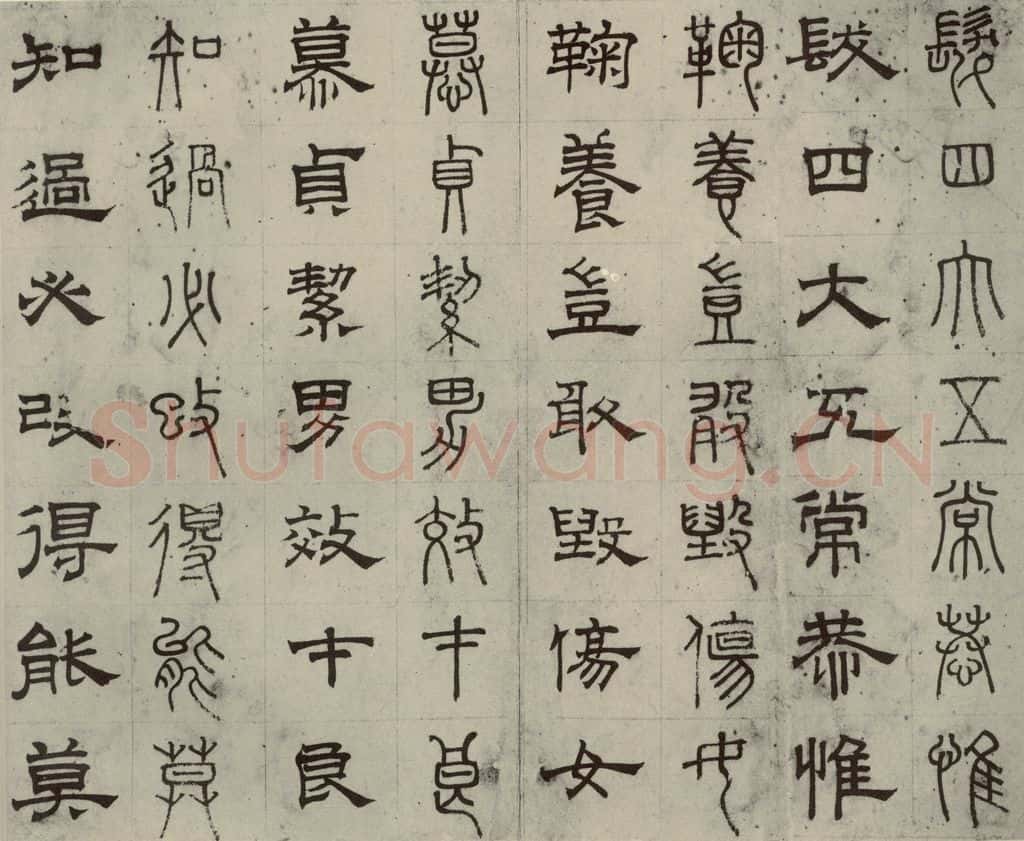 髮四大五常恭惟
髮四大五常恭惟
鞠養豈敢毀傷女
鞠養豈敢毀傷女
慕貞絜男效才良
慕貞絜男效才良
知過必改得能莫
知過必改得能莫
Shufawang.CN